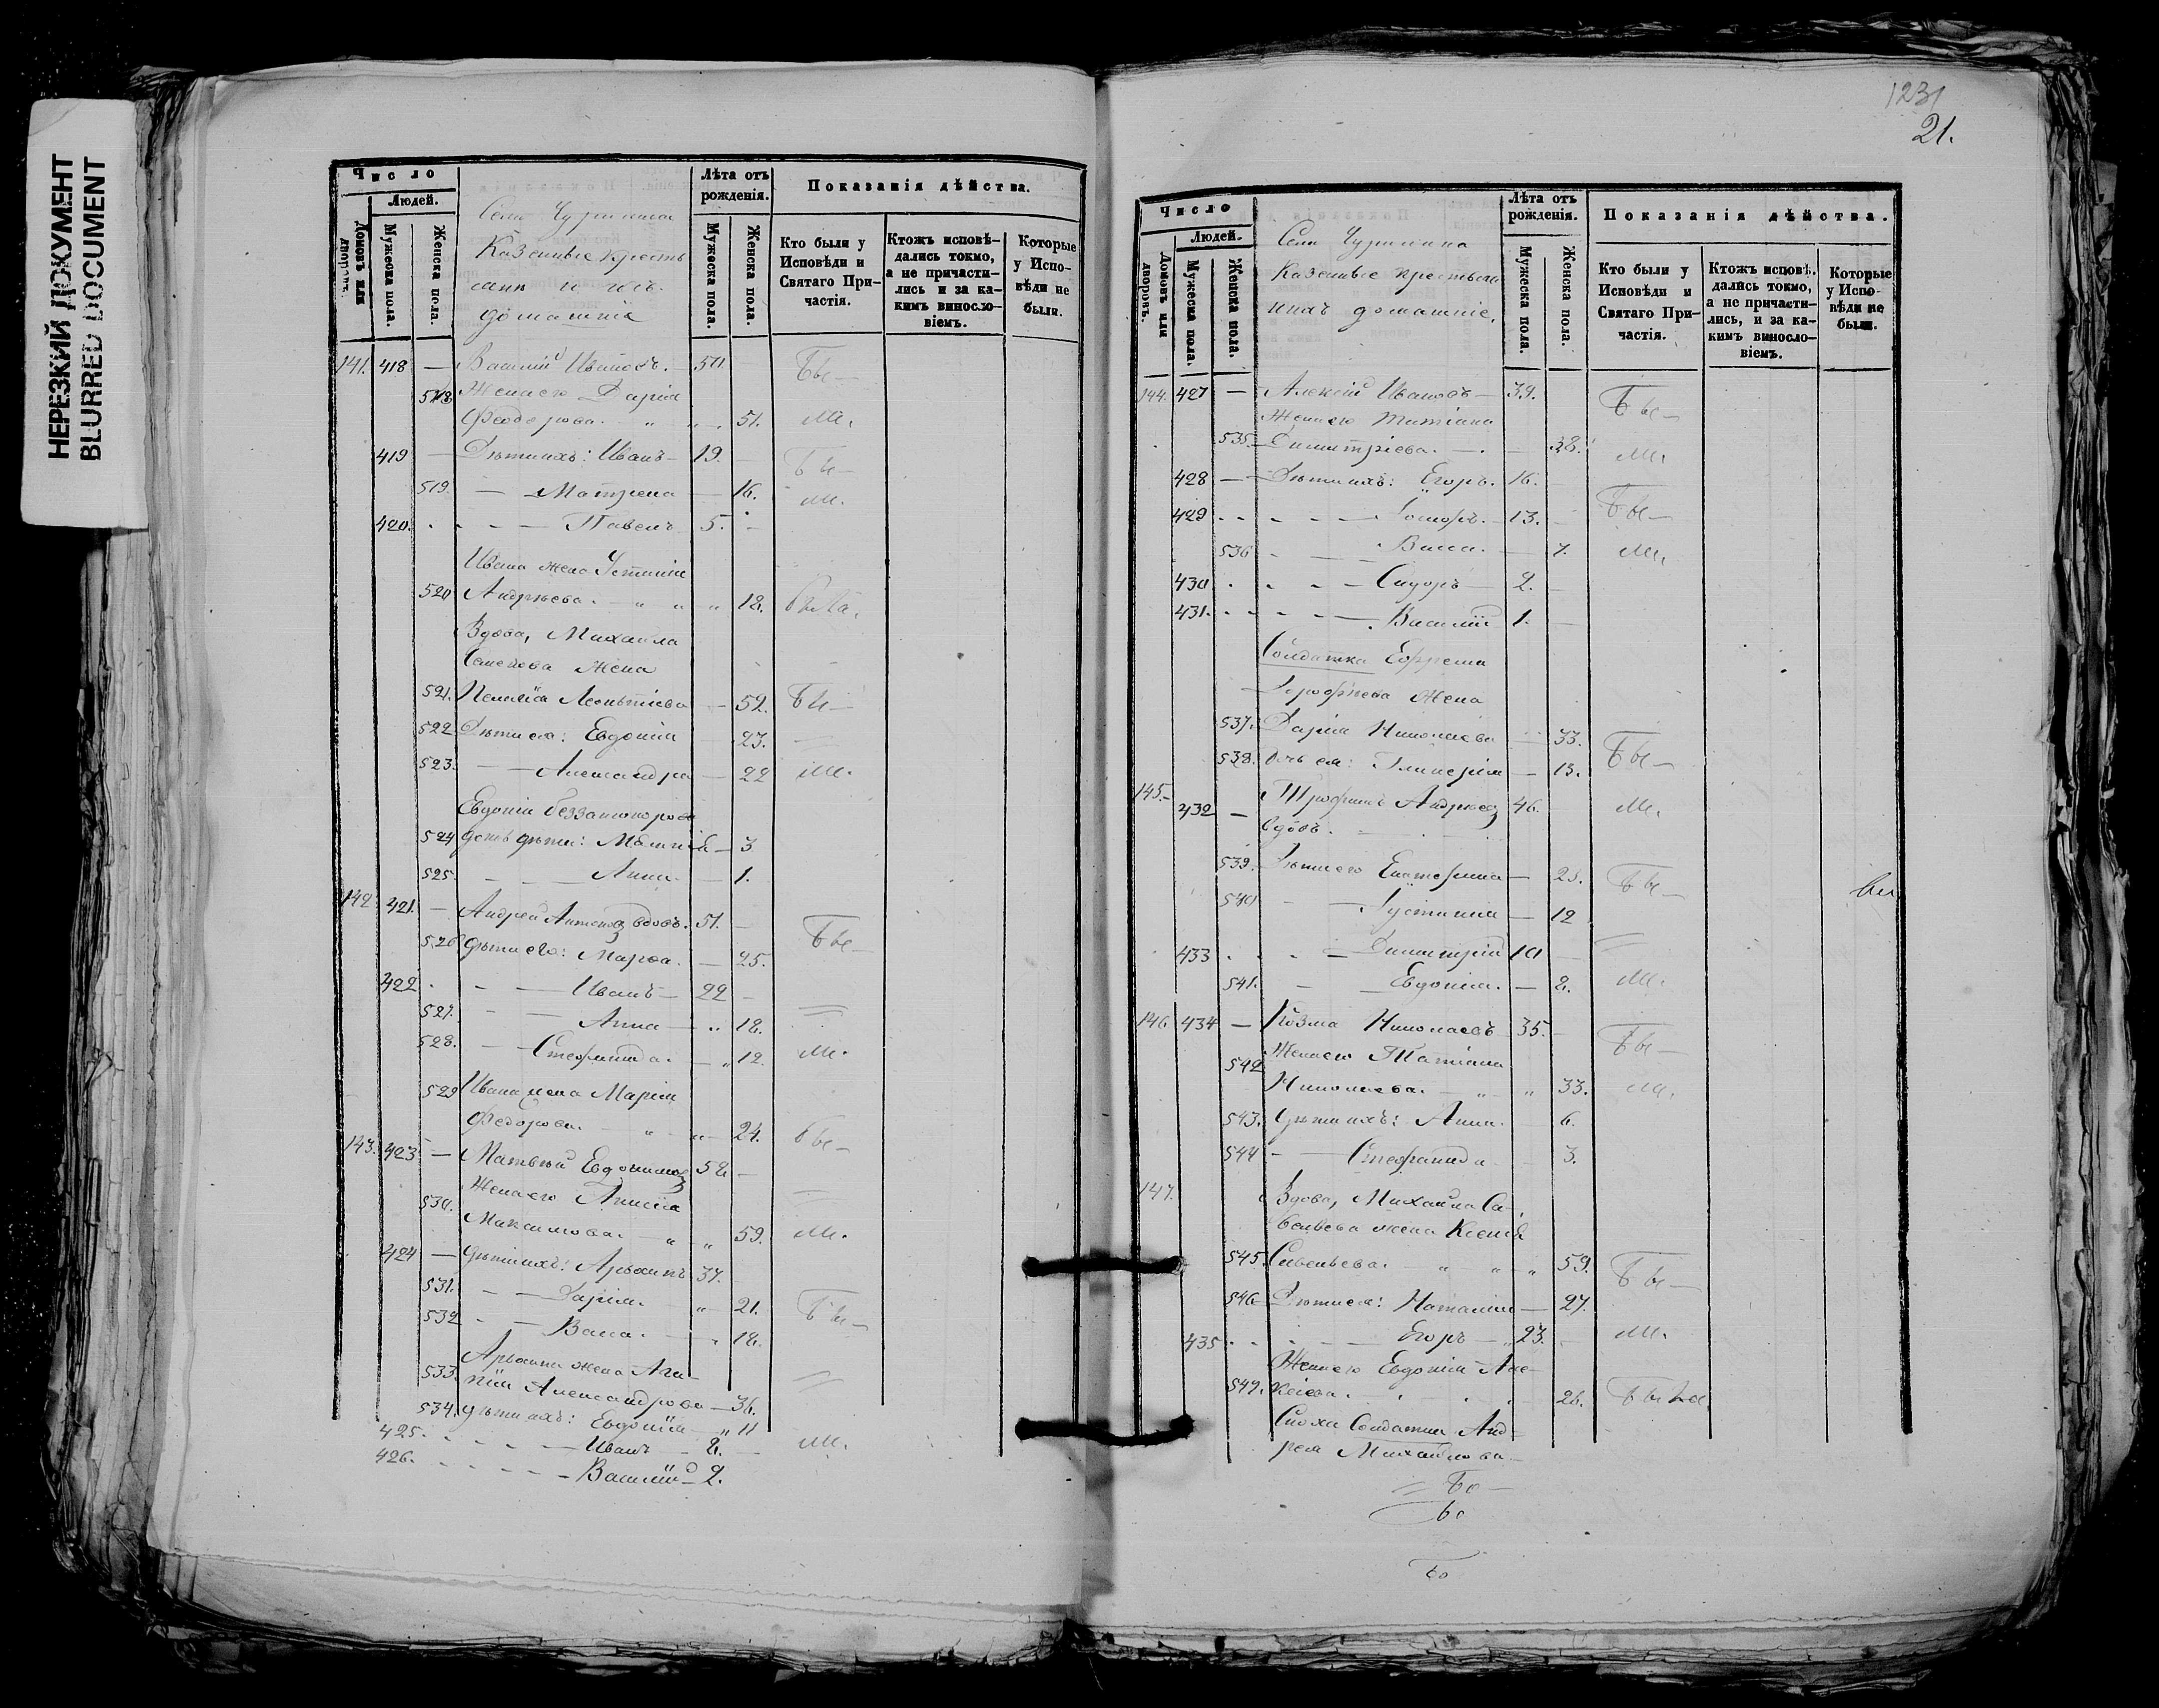 НЕРЕЗКИЙ ДОКУМЕНТ
BLURRED DOCUMENT
Число
Людей.
Домовъ или дворовъ.
Мужеска пола.
Женска пола.
Села Чурилина
Казенные кресть
яне и ихъ
домашніе
Лѣта отъ рожденія.
Мужеска пола.
Женска пола.
Показанія дѣйства.
Кто были у Исповѣди и Святаго Причастія.
Ктожъ исповѣдались токмо, а не причастились и за какимъ винословіемъ.
Которые у Исповѣди не были.
141. 418 — Василій Ивановъ. 50 Бы—
518 Жена его Дарія
Феодорова. „ „ 51. ли.
419 — Дѣти ихъ: Иванъ— 19. Бы—
519. — Матрена — 16. ли.
420. — Павелъ 5. —
Ивана жена Устинія
520 Андреева. „ „ „ 18. была.
Вдова, Михаила
Семенова жена
521. Пелагія Леонтіева — 52. Бы—
522 Дѣти ея: Евдокія — 23.
523. — Александра — 22 ли.
Евдокіи беззаконорож
524 денн дѣти: — 3
525. — Анна — 1.
142. 421. — Андрей Антоновъ вдовъ. 51. — Бы—
526 Дѣти его: Марѳа. — 25.
422 — Иванъ — 22 —
527. — Анна — „ 18.
528. — Стефанида. — „ 12. ли.
529 Ивана жена Марія
Федорова. „ „ 24. бы—
143. 423 — Матвѣй Евдокимовъ 58. —
530. Жена его Анисія
Максимова. „ „ 59. ли.
424 — Дѣти ихъ: Архипъ 37.
531. — Дарія. „ 21. Бы—
532 — Васса. „ 18.
Архипа жена Ага-
533. пія Александрова — 36.
534. Дѣти ихъ: Евдокія „ 11
425. — Иванъ — 8. ли.
426. — Василій — 2.
1231
21.
Число
Людей.
Домовъ или дворовъ.
Мужеска пола.
Женска пола.
Села Чурилина
Казенные крестьяне
и ихъ домашніе.
Лѣта отъ рожденія.
Мужеска пола.
Женска пола.
Показанія дѣйства.
Кто были у Исповѣди и Святаго Причастія.
Ктожъ исповѣдались токмо, а не причастились, и за какимъ винословіемъ.
Которые у Исповѣди не были.
144. 427 — Алексій Ивановъ — 39. Бы—
Жена его Татіана
535. Димитріева. — 38. ли.
428 — Дѣти ихъ: Егоръ. 16. Бы—
429 — 13.
536 — Васса. — 7. ли.
430 — Сидоръ — 2.
431. — Василій 1.
Солдатка Ефрема
Дорофѣева жена
537. Дарія Николаева 33. Бы—
538. Дочь ея: Гликерія — 13.
145. 432 — Трофимъ Андреевъ 46. ли.
вдовъ.
539. Дѣти его Екатерина — 23. Бы—
540 — Іустинія — 12
433 — Димитрій 10
541. — Евдокія. — 8. ли.
146 434 — Козма Николаевъ 35. — Бы—
542 Жена его Татіана
Николаева. „ „ 33. ли.
543. Дѣти ихъ: Анна. 6.
544 — Стефанида 3.
147. Вдова, Михаила Са-
вельева жена Ксенія
545. Савельева. „ „ „ 59. Бы—
546 Дѣти ея: Наталія — 27.
435 — Егоръ — 23. ли.
Жена его Евдокія Але-
547. ксіева. 26. была
Сноха Солдатка Анд-
рея Михайлова
Бо—
бо
Бо